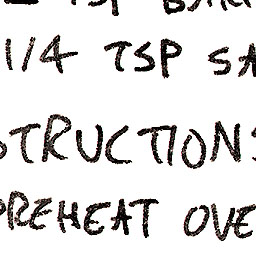 1/4 TSP SA
STRUCTIONS
PREHEAT OVE